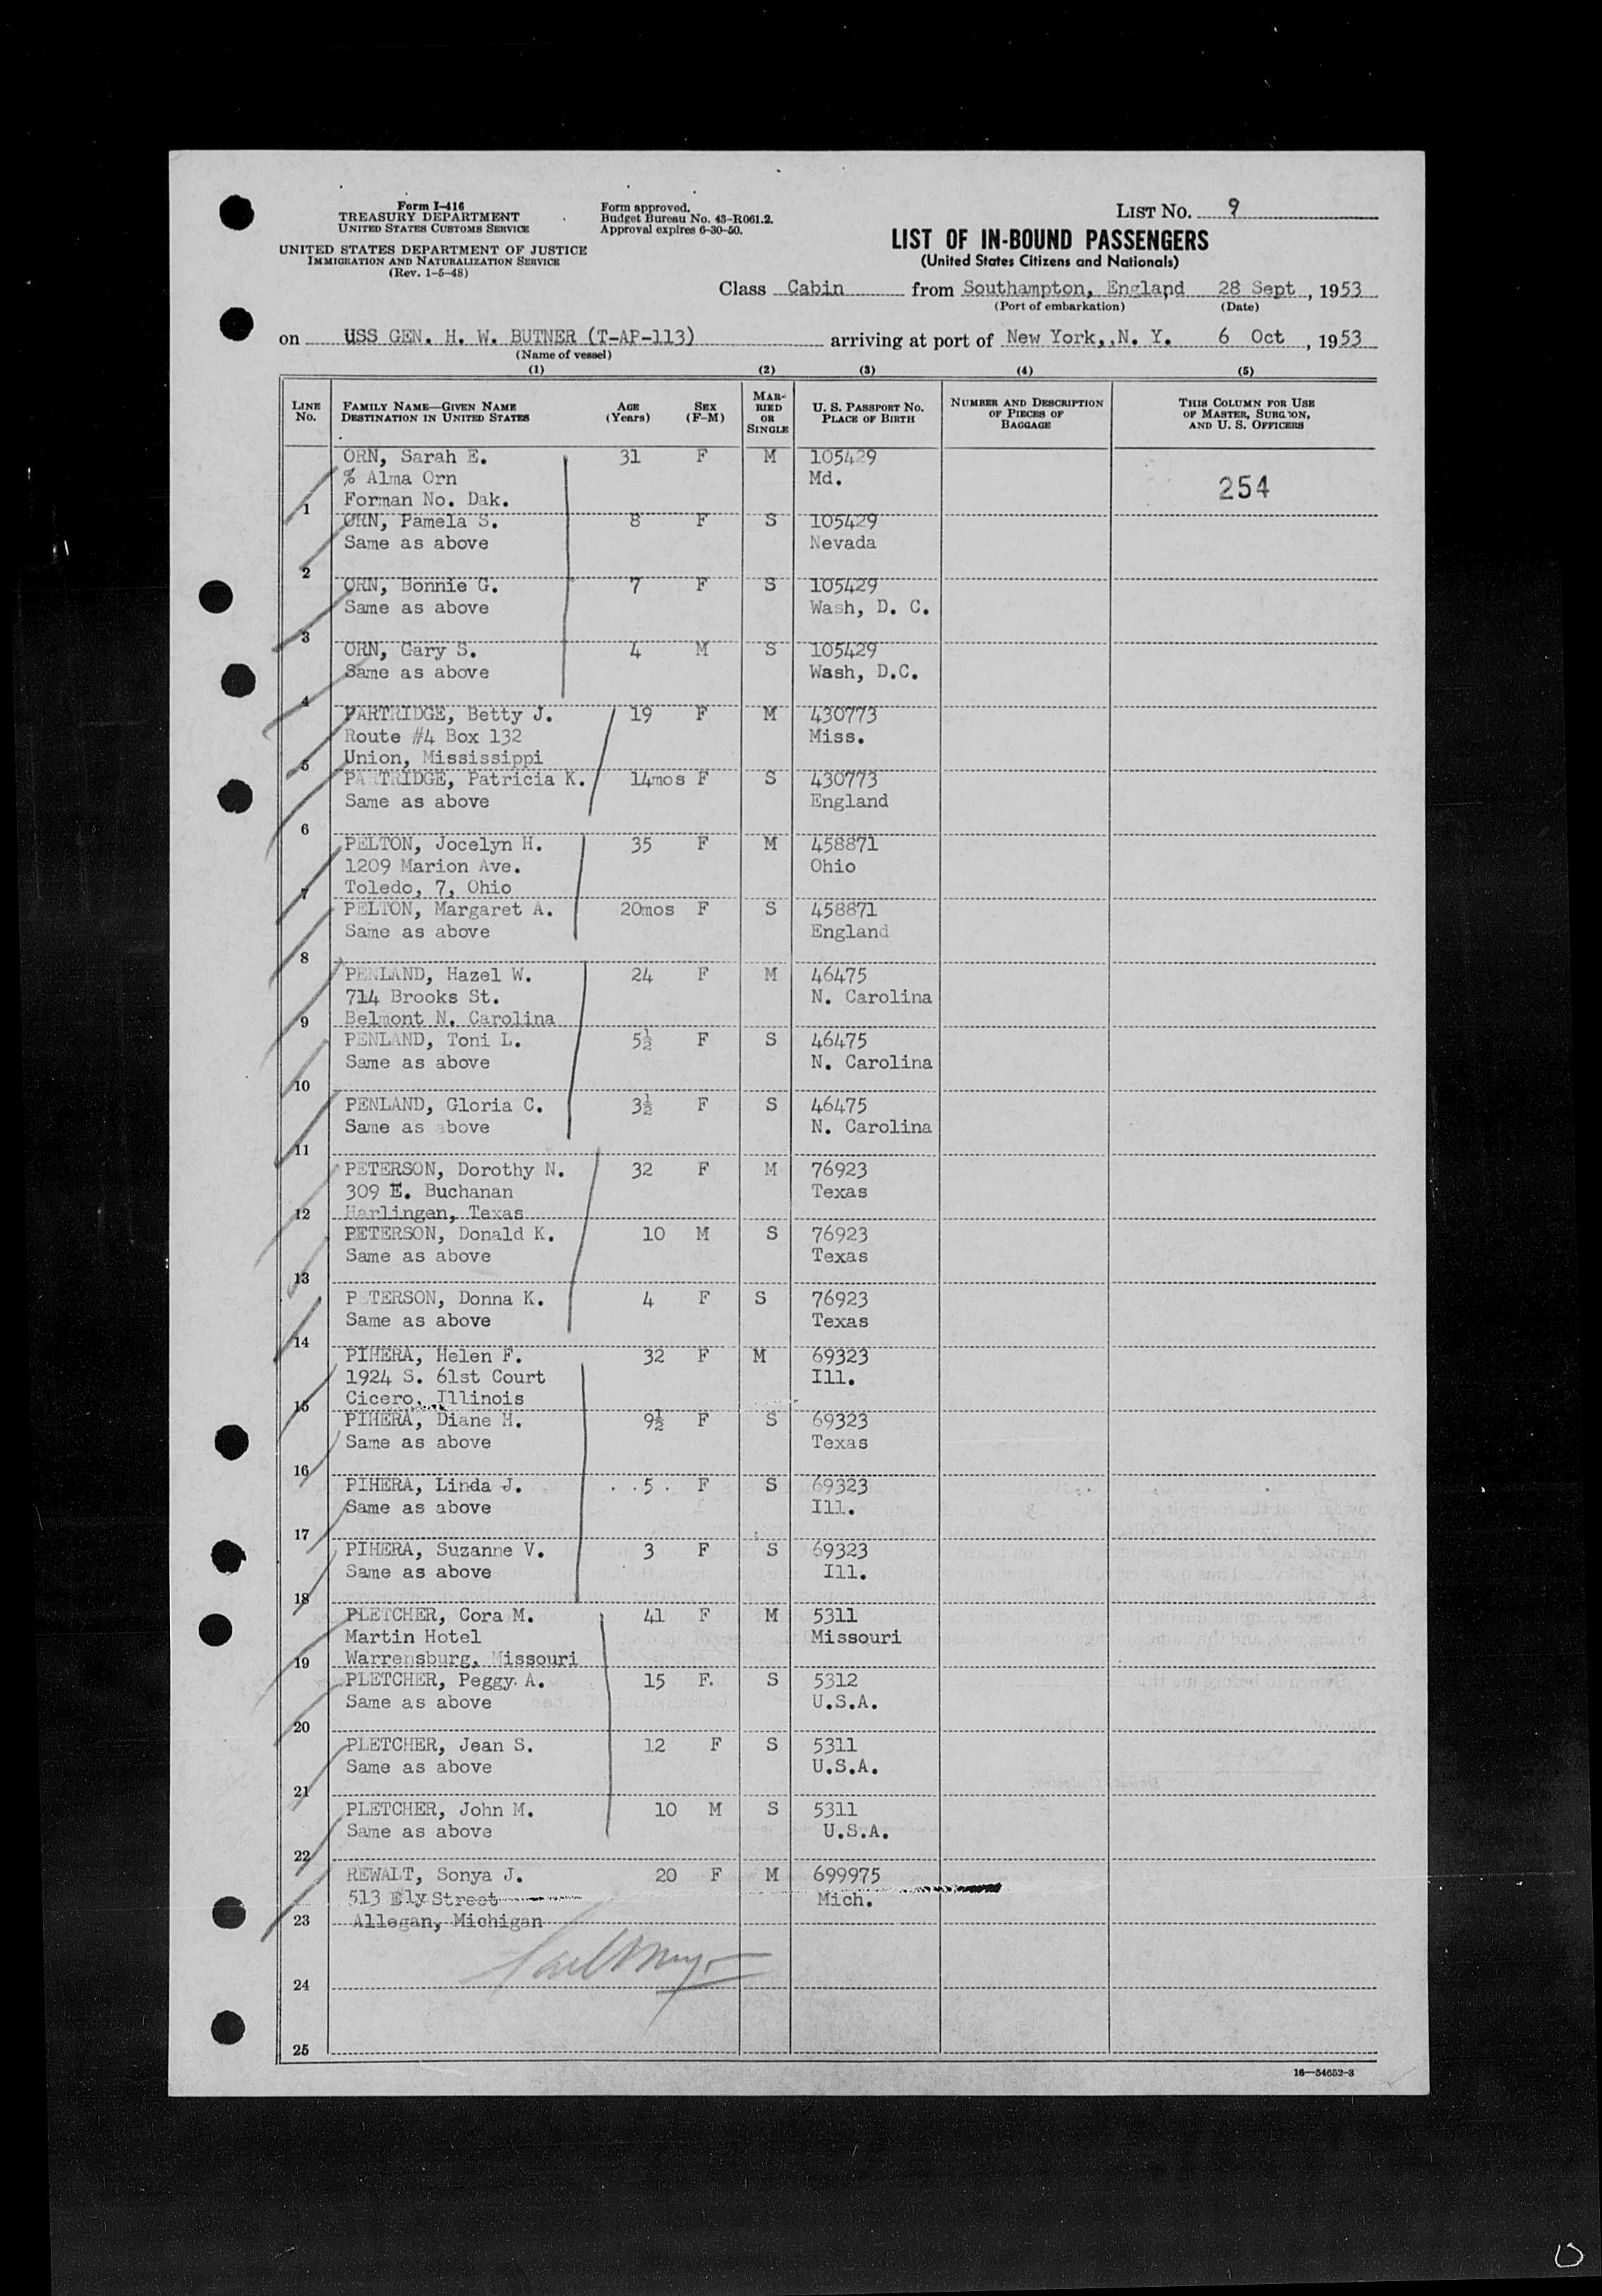 Form I-416
TREASURY DEPARTMENT
UNITED STATES CUSTOMS SERVICE
UNITED STATES DEPARTMENT OF JUSTICE
IMMIGRATION AND NATURALIZATION SERVICE
(Rev. 1-5-48)
Form approved.
Budget Bureau No. 43-R061.2.
Approval expires 6-30-50.
LIST No. 9
LIST OF IN-BOUND PASSENGERS
(United States Citizens and Nationals)
Class Cabin from Southampton, England 28 Sept, 1953
(Port of embarkation) (Date)
on USS GEN. H. W. BUTNER (T-AP-113) arriving at port of New York,.N. Y. 6 Oct, 1953
(Name of vessel)
(1) (2) (3) (4) (5)
LINE No. FAMILY NAME—GIVEN NAME DESTINATION IN UNITED STATES AGE (Years) SEX (F-M) MARRIED OR SINGLE U. S. PASSPORT No. PLACE OF BIRTH NUMBER AND DESCRIPTION OF PIECES OF BAGGAGE THIS COLUMN FOR USE OF MASTER, SURGEON, AND U. S. OFFICERS
ORN, Sarah E. 31 F M 105429
% Alma Orn Md. 254
1 Forman No. Dak.
ORN, Pamela S. 8 F S 105429
Same as above Nevada
2
ORN, Bonnie G. 7 F S 105429
Same as above Wash, D. C.
3
ORN, Gary S. 4 M S 105429
Same as above Wash, D.C.
4
PARTRIDGE, Betty J. 19 F M 430773
Route #4 Box 132 Miss.
5 Union, Mississippi
PARTRIDGE, Patricia K. 14mos F S 430773
Same as above England
6
PELTON, Jocelyn H. 35 F M 458871
1209 Marion Ave. Ohio
7 Toledo, 7, Ohio
PELTON, Margaret A. 20mos F S 458871
Same as above England
8
PENLAND, Hazel W. 24 F M 46475
714 Brooks St. N. Carolina
9 Belmont N. Carolina
PENLAND, Toni L. 5½ F S 46475
Same as above N. Carolina
10
PENLAND, Gloria C. 3½ F S 46475
Same as above N. Carolina
11
PETERSON, Dorothy N. 32 F M 76923
309 E. Buchanan Texas
12 Harlingen, Texas
PETERSON, Donald K. 10 M S 76923
Same as above Texas
13
PETERSON, Donna K. 4 F S 76923
Same as above Texas
14
PIHERA, Helen F. 32 F M 69323
1924 S. 61st Court Ill.
15 Cicero, Illinois
PIHERA, Diane H. 9½ F S 69323
Same as above Texas
16
PIHERA, Linda J. 5 F S 69323
Same as above Ill.
17
PIHERA, Suzanne V. 3 F S 69323
Same as above Ill.
18
PLETCHER, Cora M. 41 F M 5311
Martin Hotel Missouri
19 Warrensburg, Missouri
PLETCHER, Peggy A. 15 F. S 5312
Same as above U.S.A.
20
PLETCHER, Jean S. 12 F S 5311
Same as above U.S.A.
21
PLETCHER, John M. 10 M S 5311
Same as above U.S.A.
22
REWALT, Sonya J. 20 F M 699975
513 Ely Street Mich.
23 Allegan, Michigan
24
25
16—54652-3